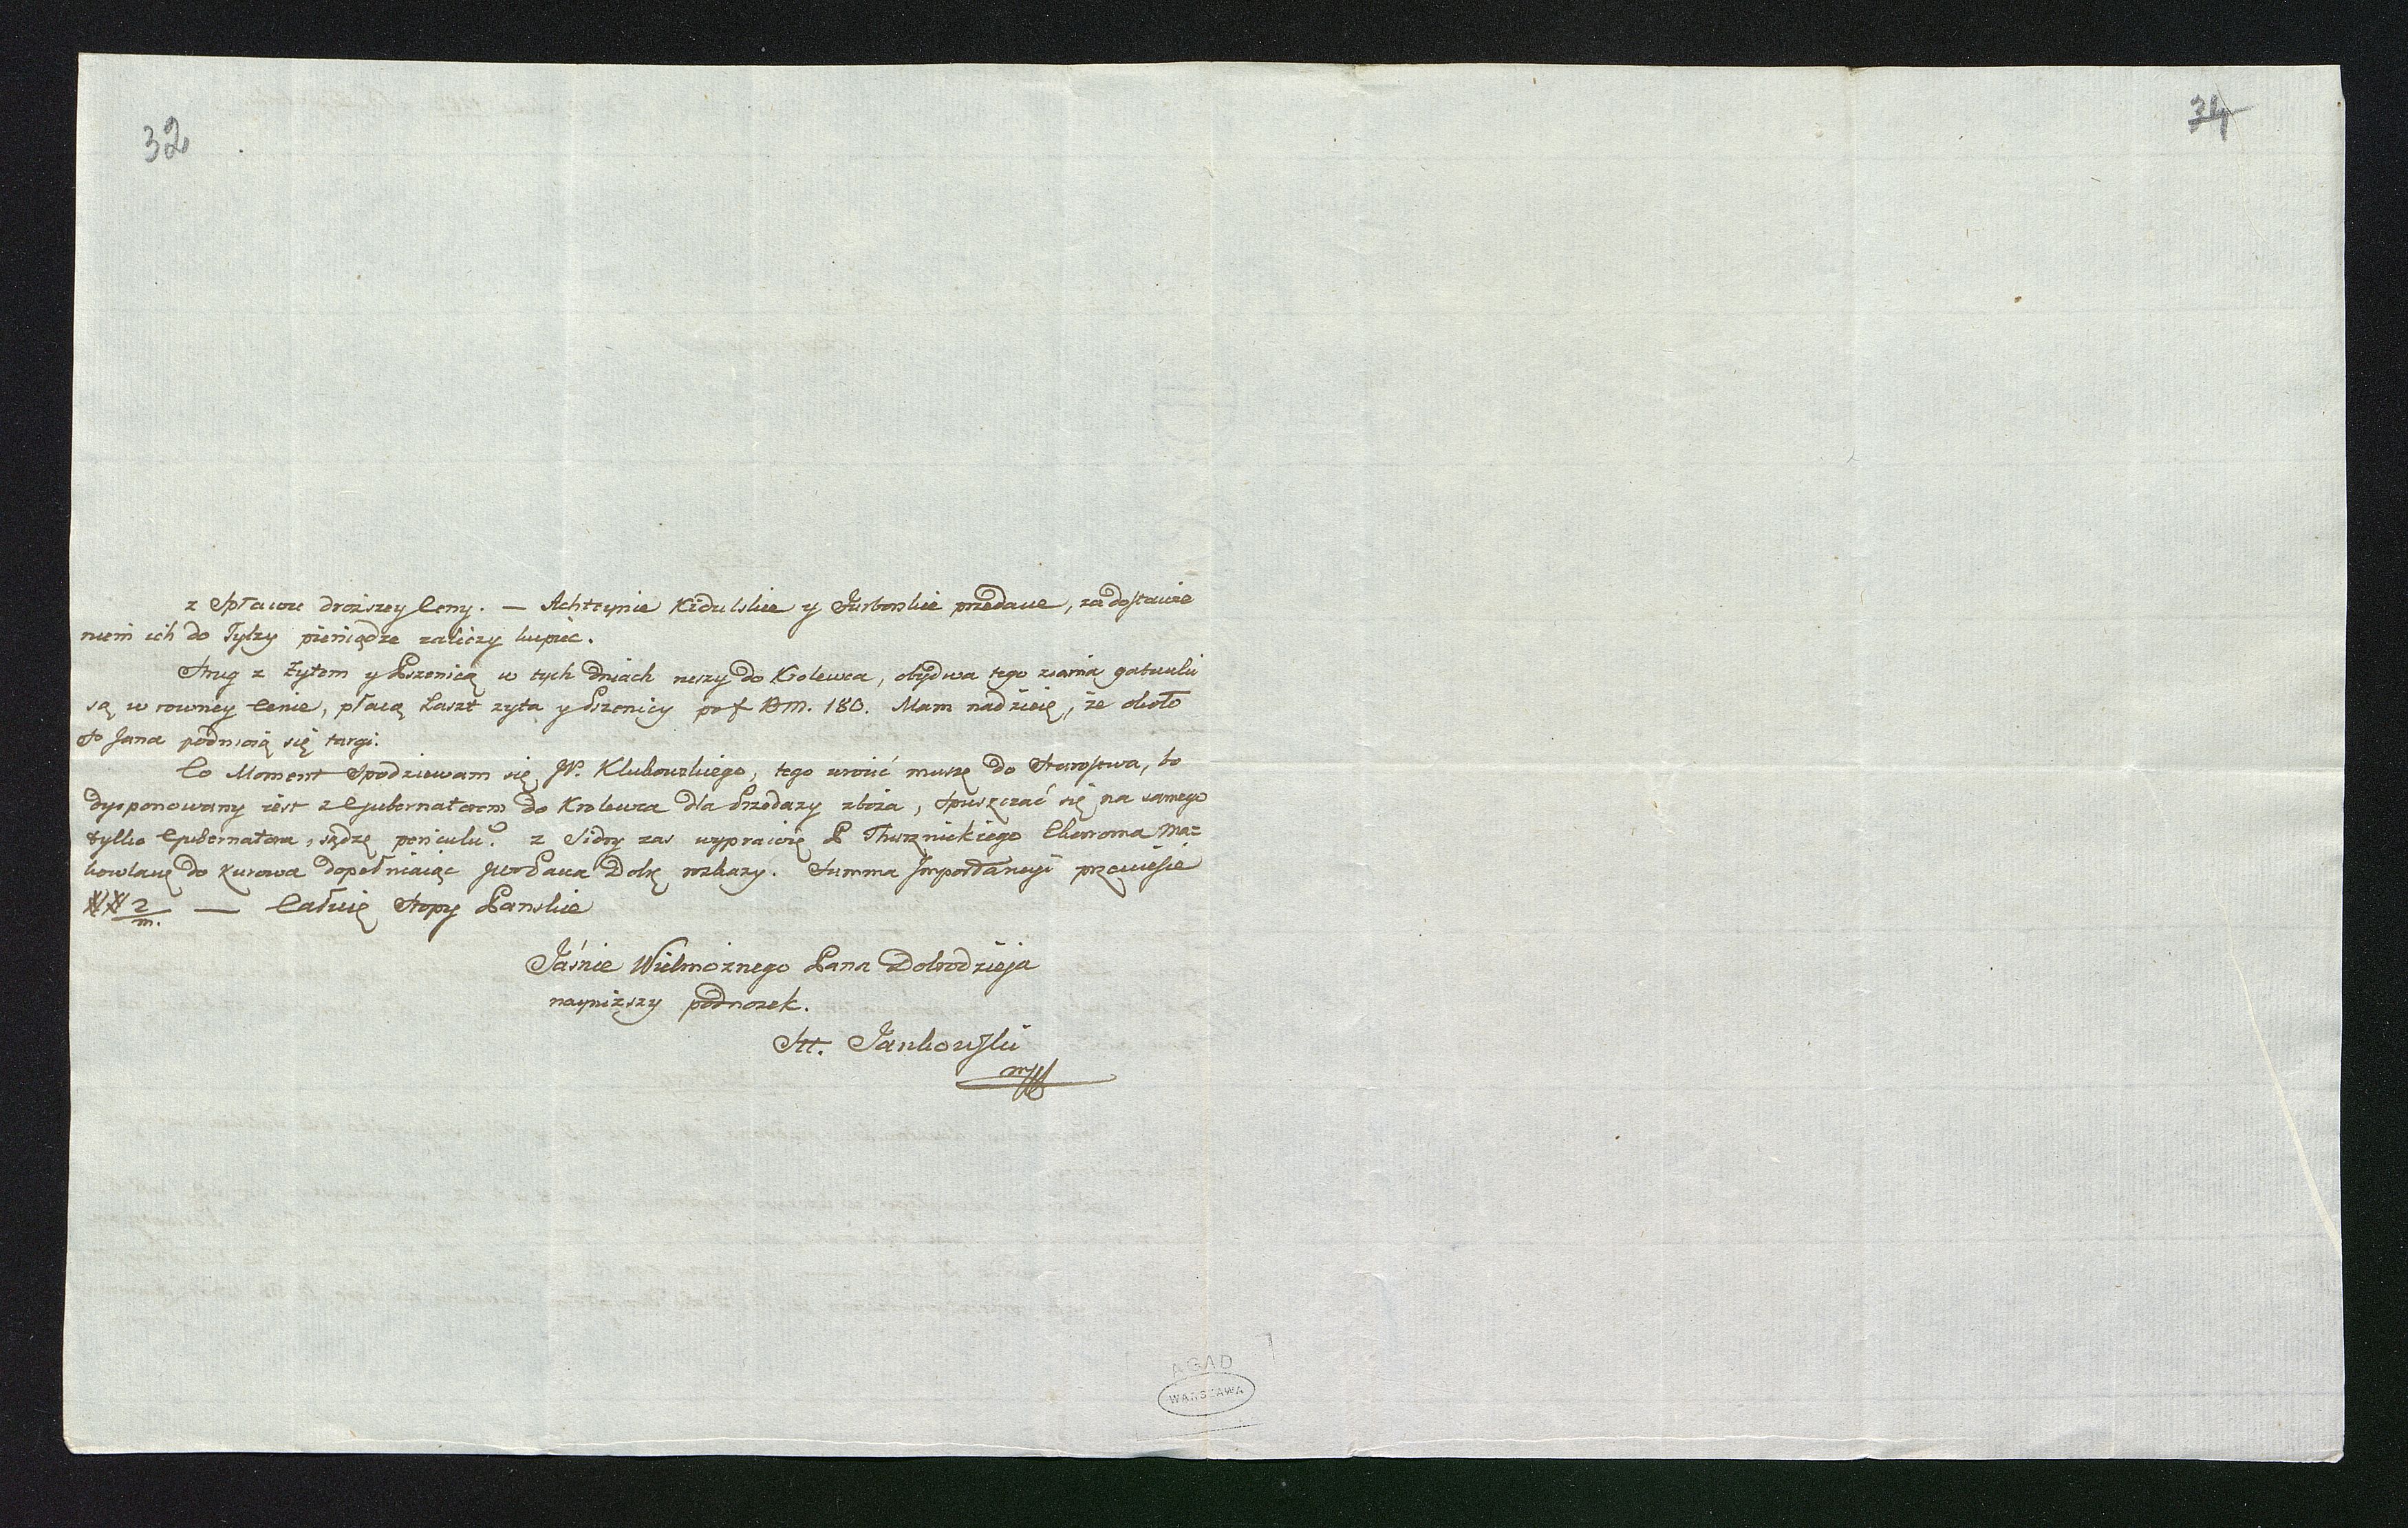 32
34
z Spławu droższey Ceny. — Achtrynie Kidulskie y Jurborskie przedane, za dostawie
niem ich do Tylzy pieniądze zaliczy kupiec.
Strug z Żytem y Pszenicą w tych dniach ruszy do Krolewca, obydwa tego ziarna gatunki
są w rowney Cenie, płacą Łaszt zyta y Pszenicy po f 180. Mam nadzieię, że około
So Jana podniosią się targi.
Co Moment Spodziewam się JP. Klukowskiego, tego wrócić muszę do Starostwa, bo
dysponowany iest z Gubernatorem do Krolewca dla Przedazy zboża, Spuszczać się na samego
tylko Gubernatora, sądzę periculū. z Sidry zas wyprawię P Thusznickiego Ekonoma Ma=
kowlanę do Kurowa dopełniaiąc JWo Pana Dobr rozkazy. Summa Importancyi przewiesie
## 2/m. — Całuię Stopy Panskie
Jaśnie Wielmożnego Pana Dobrodzieja
nayniższy podnozek.
St. Jankowski
mpp
AGAD
WARSZAWA